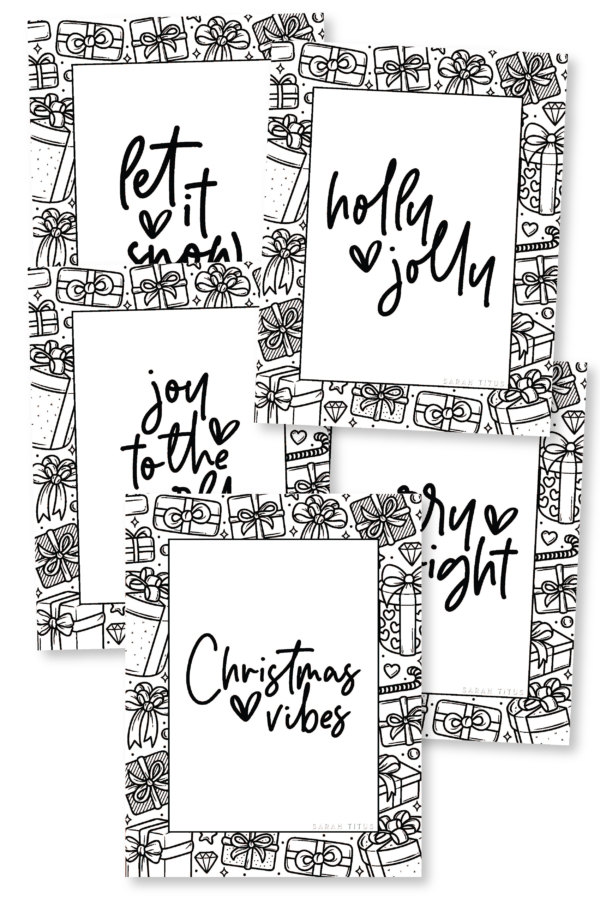 let
it
snow
holly
jolly
SARAH TITUS
joy
to the
rry
ight
SARAH TITUS
Christmas
vibes
SARAH TITUS